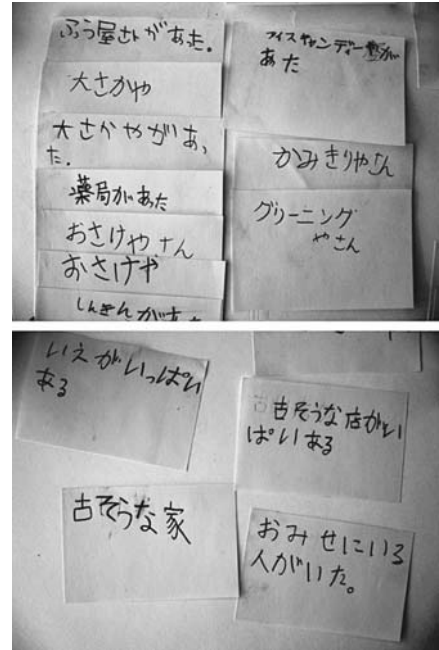 ふう屋さんがあった.
大さかや
大さかやがあっ
た.
薬局があった
おさけやさん
おさけや
しんきんがあ
アイスキャンディーやが
あた
かみきりやさん
グリーニング
やさん
いえがいっぱい
ある
古そうな店がい
ぱいある
古そうな家
おみせにいる
人がいた。